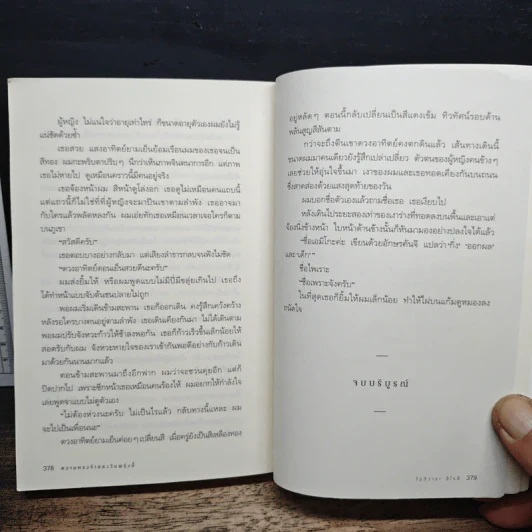 ผู้หญิง ไม่แน่ใจว่าอายุเท่าไหร่ ก็ขนาดอายุตัวเองผมยังไม่รู้
แน่ชัดด้วยซ้ำ
เธอสวย แสงอาทิตย์ยามเย็นย้อมเรือนผมของเธอจนเป็น
สีทอง ผมกะพริบตาปริบๆ นึกว่าเห็นภาพจินตนาการอีก แต่ภาพ
เธอไม่หายไป ดูเหมือนคราวนี้มีคนอยู่จริง
เธอจ้องหน้าผม สีหน้าดูโล่งอก เธอดูไม่เหมือนคนแถบนี้
แต่แถวนี้ก็ไม่ใช่ที่ที่ผู้หญิงจะมาปีนเขาตามลำพัง เธออาจมา
กับใครแล้วพลัดหลงกัน ผมเอ่ยทักเธอเหมือนเวลาเจอใครก็ตาม
บนภูเขา
“สวัสดีครับ”
เธอตอบบางอย่างกลับมา แต่เสียงลำธารกลบจนฟังไม่ชัด
“ดวงอาทิตย์ตอนเย็นสวยดีนะครับ”
ผมส่งยิ้มให้ หรือผมพูดแบบไม่มีปี่มีขลุ่ยเกินไป เธอถึง
ได้ทำหน้าแบบจับต้นชนปลายไม่ถูก
พอผมเริ่มเดินข้ามสะพาน เธอก็ออกเดิน คงรู้สึกเคว้งคว้าง
หลังรอใครบางคนอยู่ตามลำพัง เธอเดินเคียงกันมา ไม่ได้เดินตาม
พอผมปรับจังหวะก้าวให้ช้าลงพอกัน เธอก็ก้าวเร็วขึ้นเล็กน้อยให้
สอดรับกับผม จังหวะหายใจของเราเข้ากันพอดีอย่างกับก้าวเดิน
มาด้วยกันนานมากแล้ว
ตอนข้ามสะพานมาถึงอีกฟาก ผมว่าจะชวนคุยอีก แต่ก็
ปิดปากไป เพราะซีกหน้าเธอเหมือนคนร้องไห้ ผมอยากให้กำลังใจ
เลยพูดจาแบบไม่ดูตัวเอง
“ไม่ต้องห่วงนะครับ ไม่เป็นไรแล้ว กลับทางนี้แหละ ผม
จะไปเป็นเพื่อนนะ”
ดวงอาทิตย์ยามเย็นค่อยๆ เปลี่ยนสี เมื่อครู่ยังเป็นสีเหลืองทอง
378
อยู่หลัดๆ ตอนนี้กลับเปลี่ยนเป็นสีแดงเข้ม ทิวทัศน์รอบด้าน
พลันสูญสีสันตาม
กว่าจะถึงตีนเขาดวงอาทิตย์คงตกดินแล้ว เส้นทางเดินนี้
ขนาดผมมาคนเดียวยังรู้สึกเปล่าเปลี่ยว ตัวตนของผู้หญิงคนข้างๆ
เลยช่วยให้อุ่นใจขึ้นมา เงาของผมและเธอทอดเคียงกันบนถนน
ซึ่งสาดส่องด้วยแสงสุดท้ายของวัน
ผมบอกชื่อตัวเองแล้วถามชื่อเธอ เธอเงียบไป
หลังเดินไประยะสองเท่าของเงาร่างที่ทอดลงบนพื้นและเอาแต่
จ้องนิ่งข้างหน้า ใบหน้าด้านข้างนั้นก็หันมามองอย่างปลงใจได้แล้ว
“ชื่อเอมิโกะค่ะ เขียนด้วยอักษรคันจิ แปลว่า ‘กิ่ง’ ‘ออกผล’
และ ‘เด็ก’”
ชื่อไพเราะ
“ชื่อเพราะจังครับ”
ในที่สุดเธอก็ยิ้มให้ผมเล็กน้อย ทำให้ไฝบนแก้มดูหมองลง
ถนัดใจ
จบบริบูรณ์
379